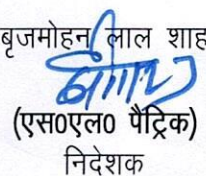 बृजमोहन लाल शाह
(एस0एल0 पैट्रिक)
निदेशक